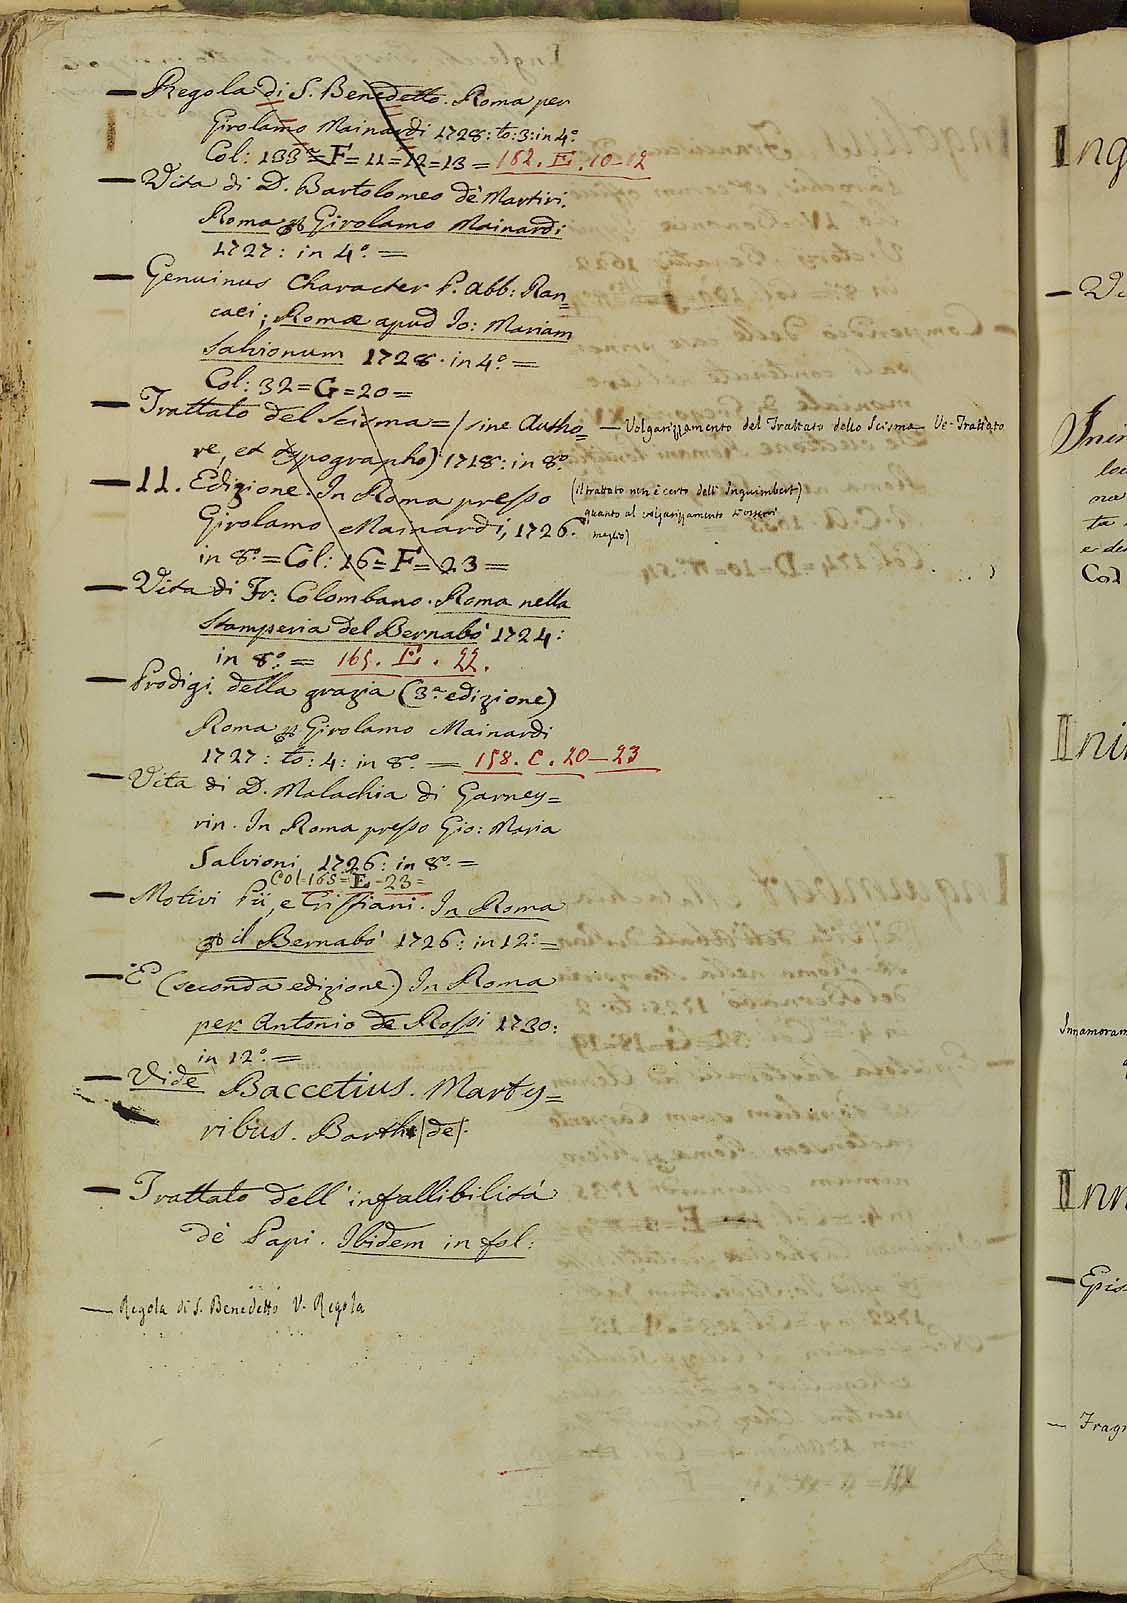 — Regola di S. Benedetto. Roma per
Girolamo Mainardi 1728: to: 3: in 4.º
Col: 133 = F = 11 = 12 = 13 = 152. E. 10-12
— Vita di D. Bartolomeo de' Martiri.
Roma Girolamo Mainardi
1727: in 4.º =
— Genuinus Character P. Abb: Ran=
caei; Romæ apud Jo: Mariam
Salvionum 1728. in 4.º =
Col: 32 = G = 20 =
— Trattato del Scisma = / sine Autho=
re, et typographo) 1728: in 8.º
— Volgarizzamento del Trattato dello Scisma Ve- Trattato
— 11. Edizione. In Roma presso
Girolamo Mainardi, 1726.
in 8.º = Col: 16 = F = 23 =
(il trattato non è certo dell' Inguimbert)
quanto al volgarizzamento
meglio)
— Vita di Fr: Colombano. Roma nella
Stamperia del Bernabò 1724:
in 8.º = 165. E. 22.
— Prodigi della grazia (3.a edizione)
Roma Girolamo Mainardi
1727: to: 4: in 8.º = 158. C. 20—23
— Vita di D. Malachia di Garney=
rin. In Roma presso Gio: Maria
Salvioni 1726: in 8.º =
Col-165=E-23=
— Motivi Pii, e Cristiani. In Roma
il Bernabò 1726: in 12.º =
— E (seconda edizione.) In Roma
per Antonio de Rossi 1730:
in 12.º =
— Vide Baccetius. Marty=
ribus. Barth: (de).
— Trattato dell' infallibilità
de' Papi. Ibidem in fol:
— Regola di S. Benedetto V. Regola
Ing
Inn
Cod
Innamoram
Epis
Fragm